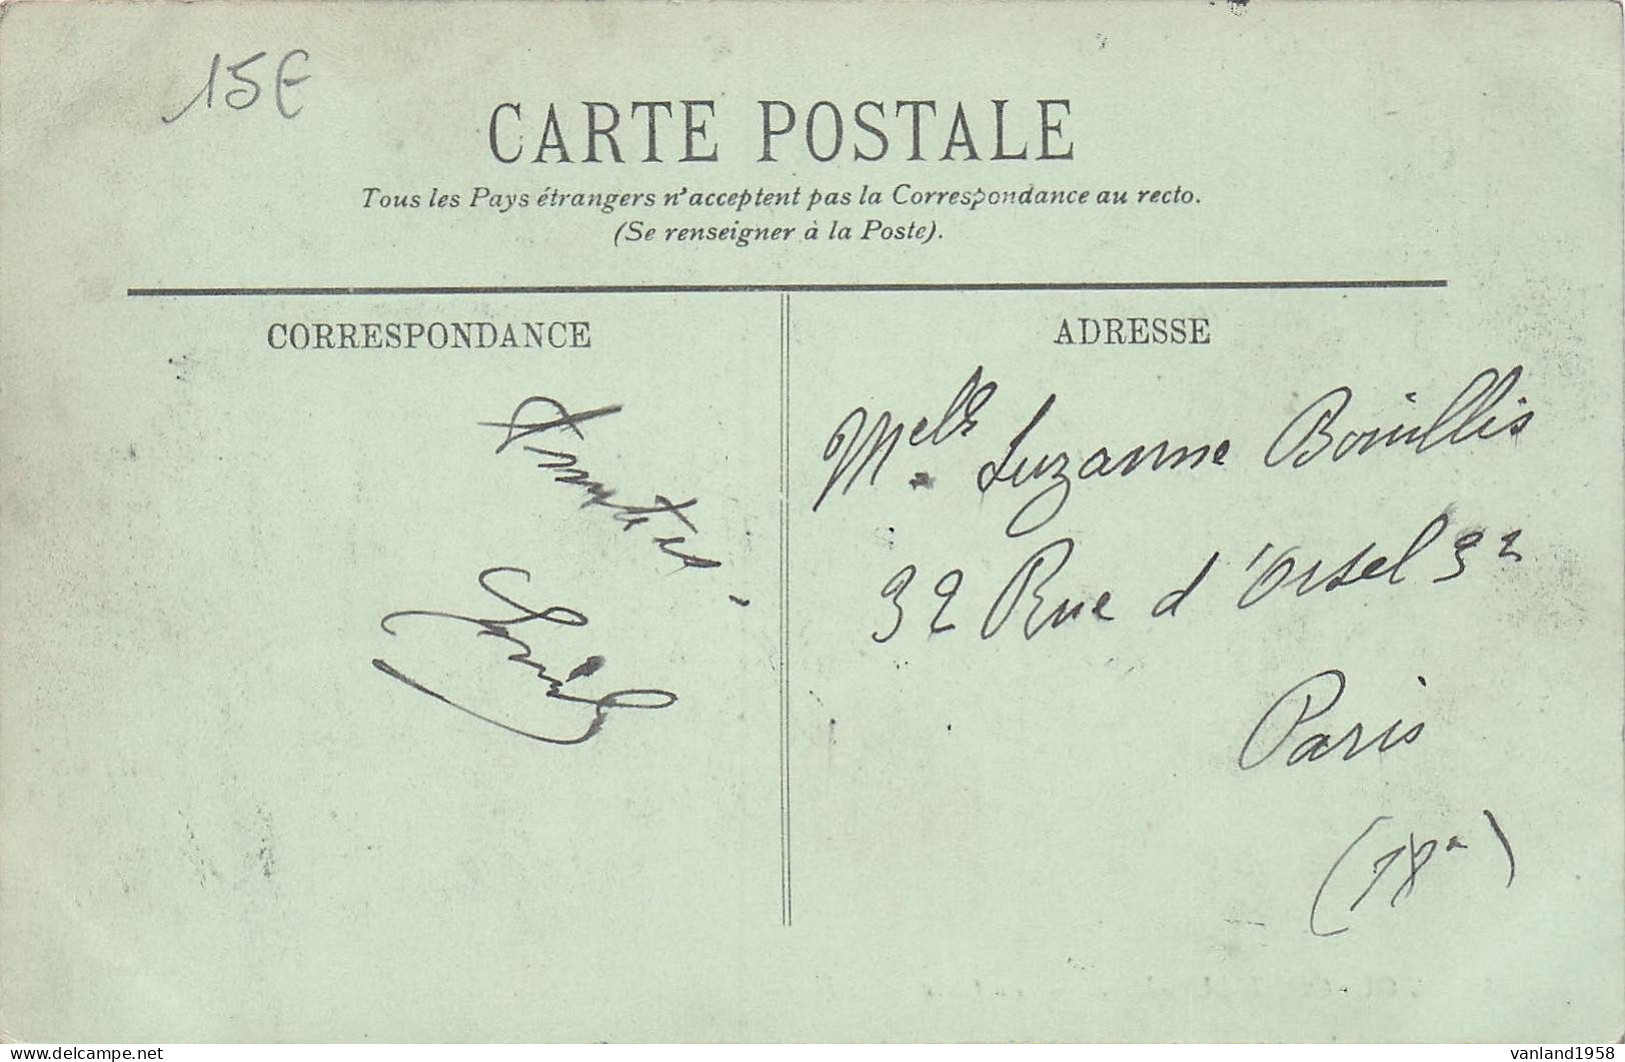 15E
CARTE POSTALE
Tous les Pays étrangers n'acceptent pas la Correspondance au recto.
(Se renseigner à la Poste).
CORRESPONDANCE
ADRESSE
Melle Suzanne Bouillis
32 Rue d'Orsel 32
Paris
(18e)
vanland1958